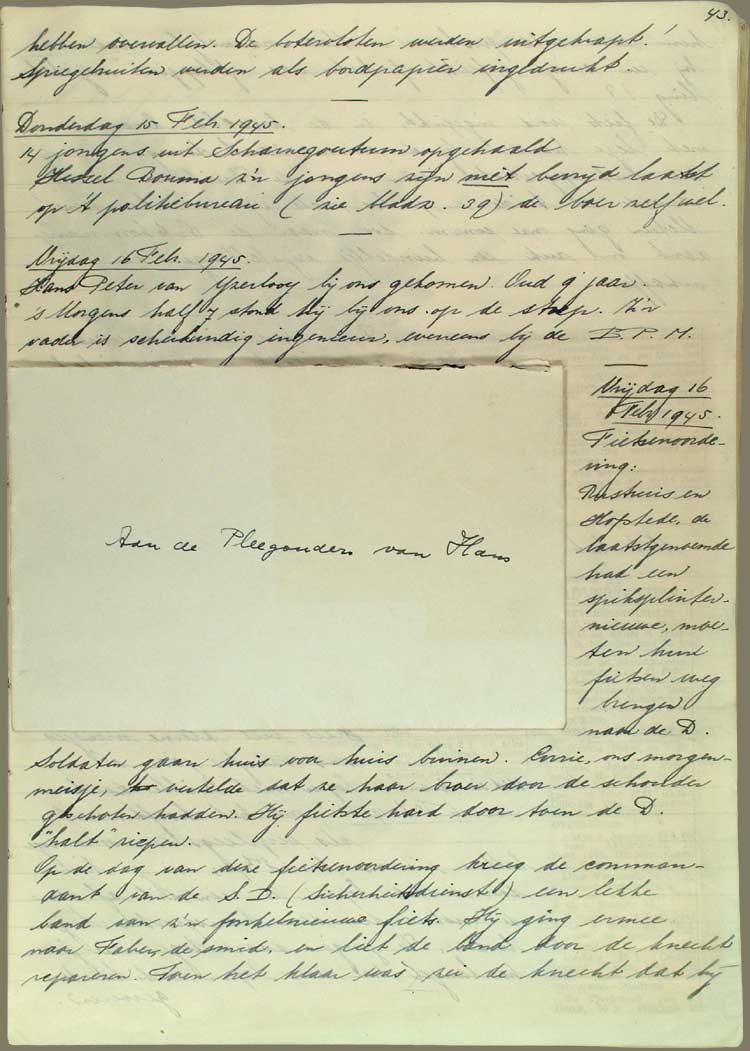 43.
hebben overvallen. De botervloten werden uitgetrapt!
Spiegelruiten werden als bordpapier ingedrukt.
Donderdag 15 Febr. 1945.
14 jongens uit Scharnegoutum opgehaald
Hessel Douma z'n jongens zijn niet bevrijd laatst
op 't politiebureau (zie bladz. 39) de boer zelf wel.
Vrijdag 16 Febr. 1945.
Hans Peter van IJzerlooy bij ons gekomen. Oud 9 jaar.
's Morgens half 7 stond hij bij ons op de stoep. Z'n
vader is scheikundig ingenieur, eveneens bij de B.P.M.
Aan de Pleegouders van Hans
Vrijdag 16
Febr. 1945.
Fietsenvorde-
ring:
en
Hofstede, de
laatstgenoemde
had een
spiksplinter-
nieuwe, moe-
ten hun
fietsen weg
brengen
naar de D.
Soldaten gaan huis voor huis binnen. Corrie, ons morgen-
meisje, vertelde dat ze haar broer door de schouder
geschoten hadden. Hij fietste hard door toen de D.
"halt" riepen.
Op de dag van deze fietsenvordering kreeg de comman-
dant van de S.D. (Sicherheitsdienst) een lekke
band van z'n fonkelnieuwe fiets. Hij ging ermee
naar Faber, de smid, en liet de band door de knecht
repareren. Toen het klaar was, zei de knecht dat hij